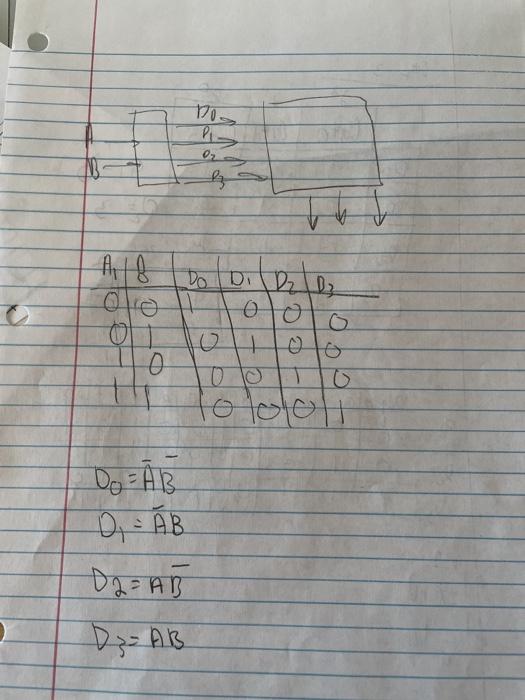 D0
A D1
B D2
D3
A1 B D0 D1 D2 D3
0 0 1 0 0 0
0 1 0 1 0 0
1 0 0 0 1 0
1 1 0 0 0 1
D0 = A̅ B̅
D1 = A̅ B
D2 = A B̅
D3 = A B